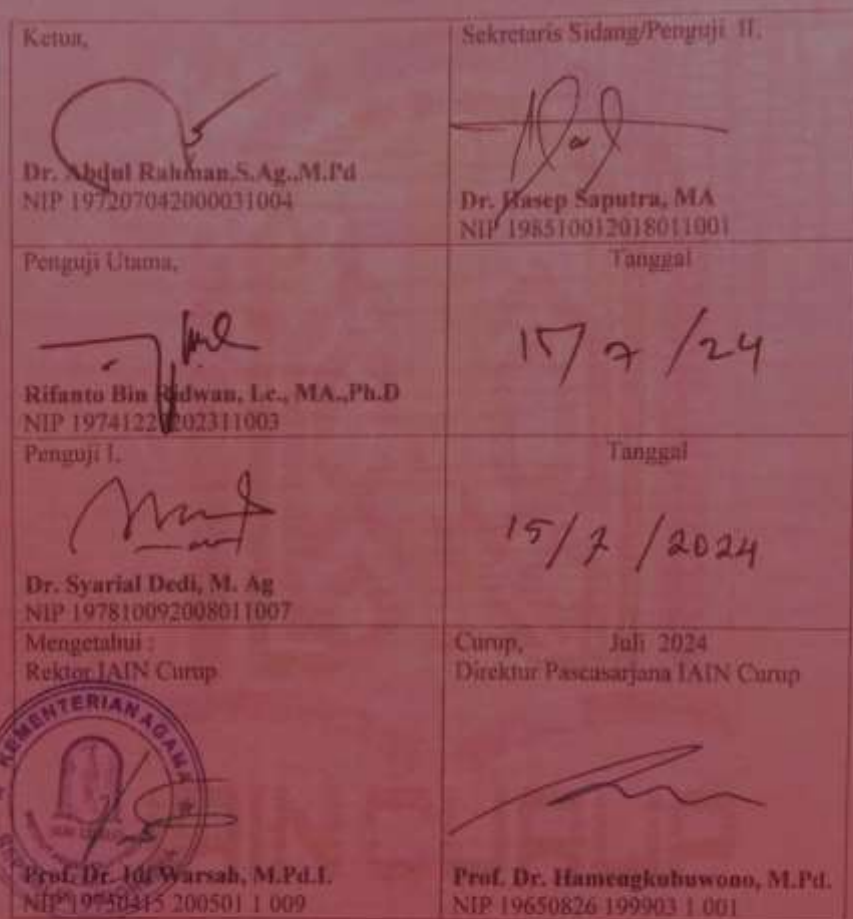 Ketua,
Dr. Abdul Rahman,S.Ag.,M.Pd
NIP 197207042000031004
Sekretaris Sidang/Penguji II,
Dr. Hasep Saputra, MA
NIP 198510012018011001
Penguji Utama,
Rifanto Bin Ridwan, Lc., MA.,Ph.D
NIP
Tanggal
15/7/24
Penguji I,
Dr. Syarial Dedi, M. Ag
NIP 197810092008011007
Tanggal
15/7/2024
Mengetahui :
Rektor IAIN Curup
KEMENTERIAN AGAMA
Prof. Dr. Idi Warsah, M.Pd.I.
NIP 19750415 200501 1 009
Curup, Juli 2024
Direktur Pascasarjana IAIN Curup
Prof. Dr. Hamengkubuwono, M.Pd.
NIP 19650826 199903 1 001